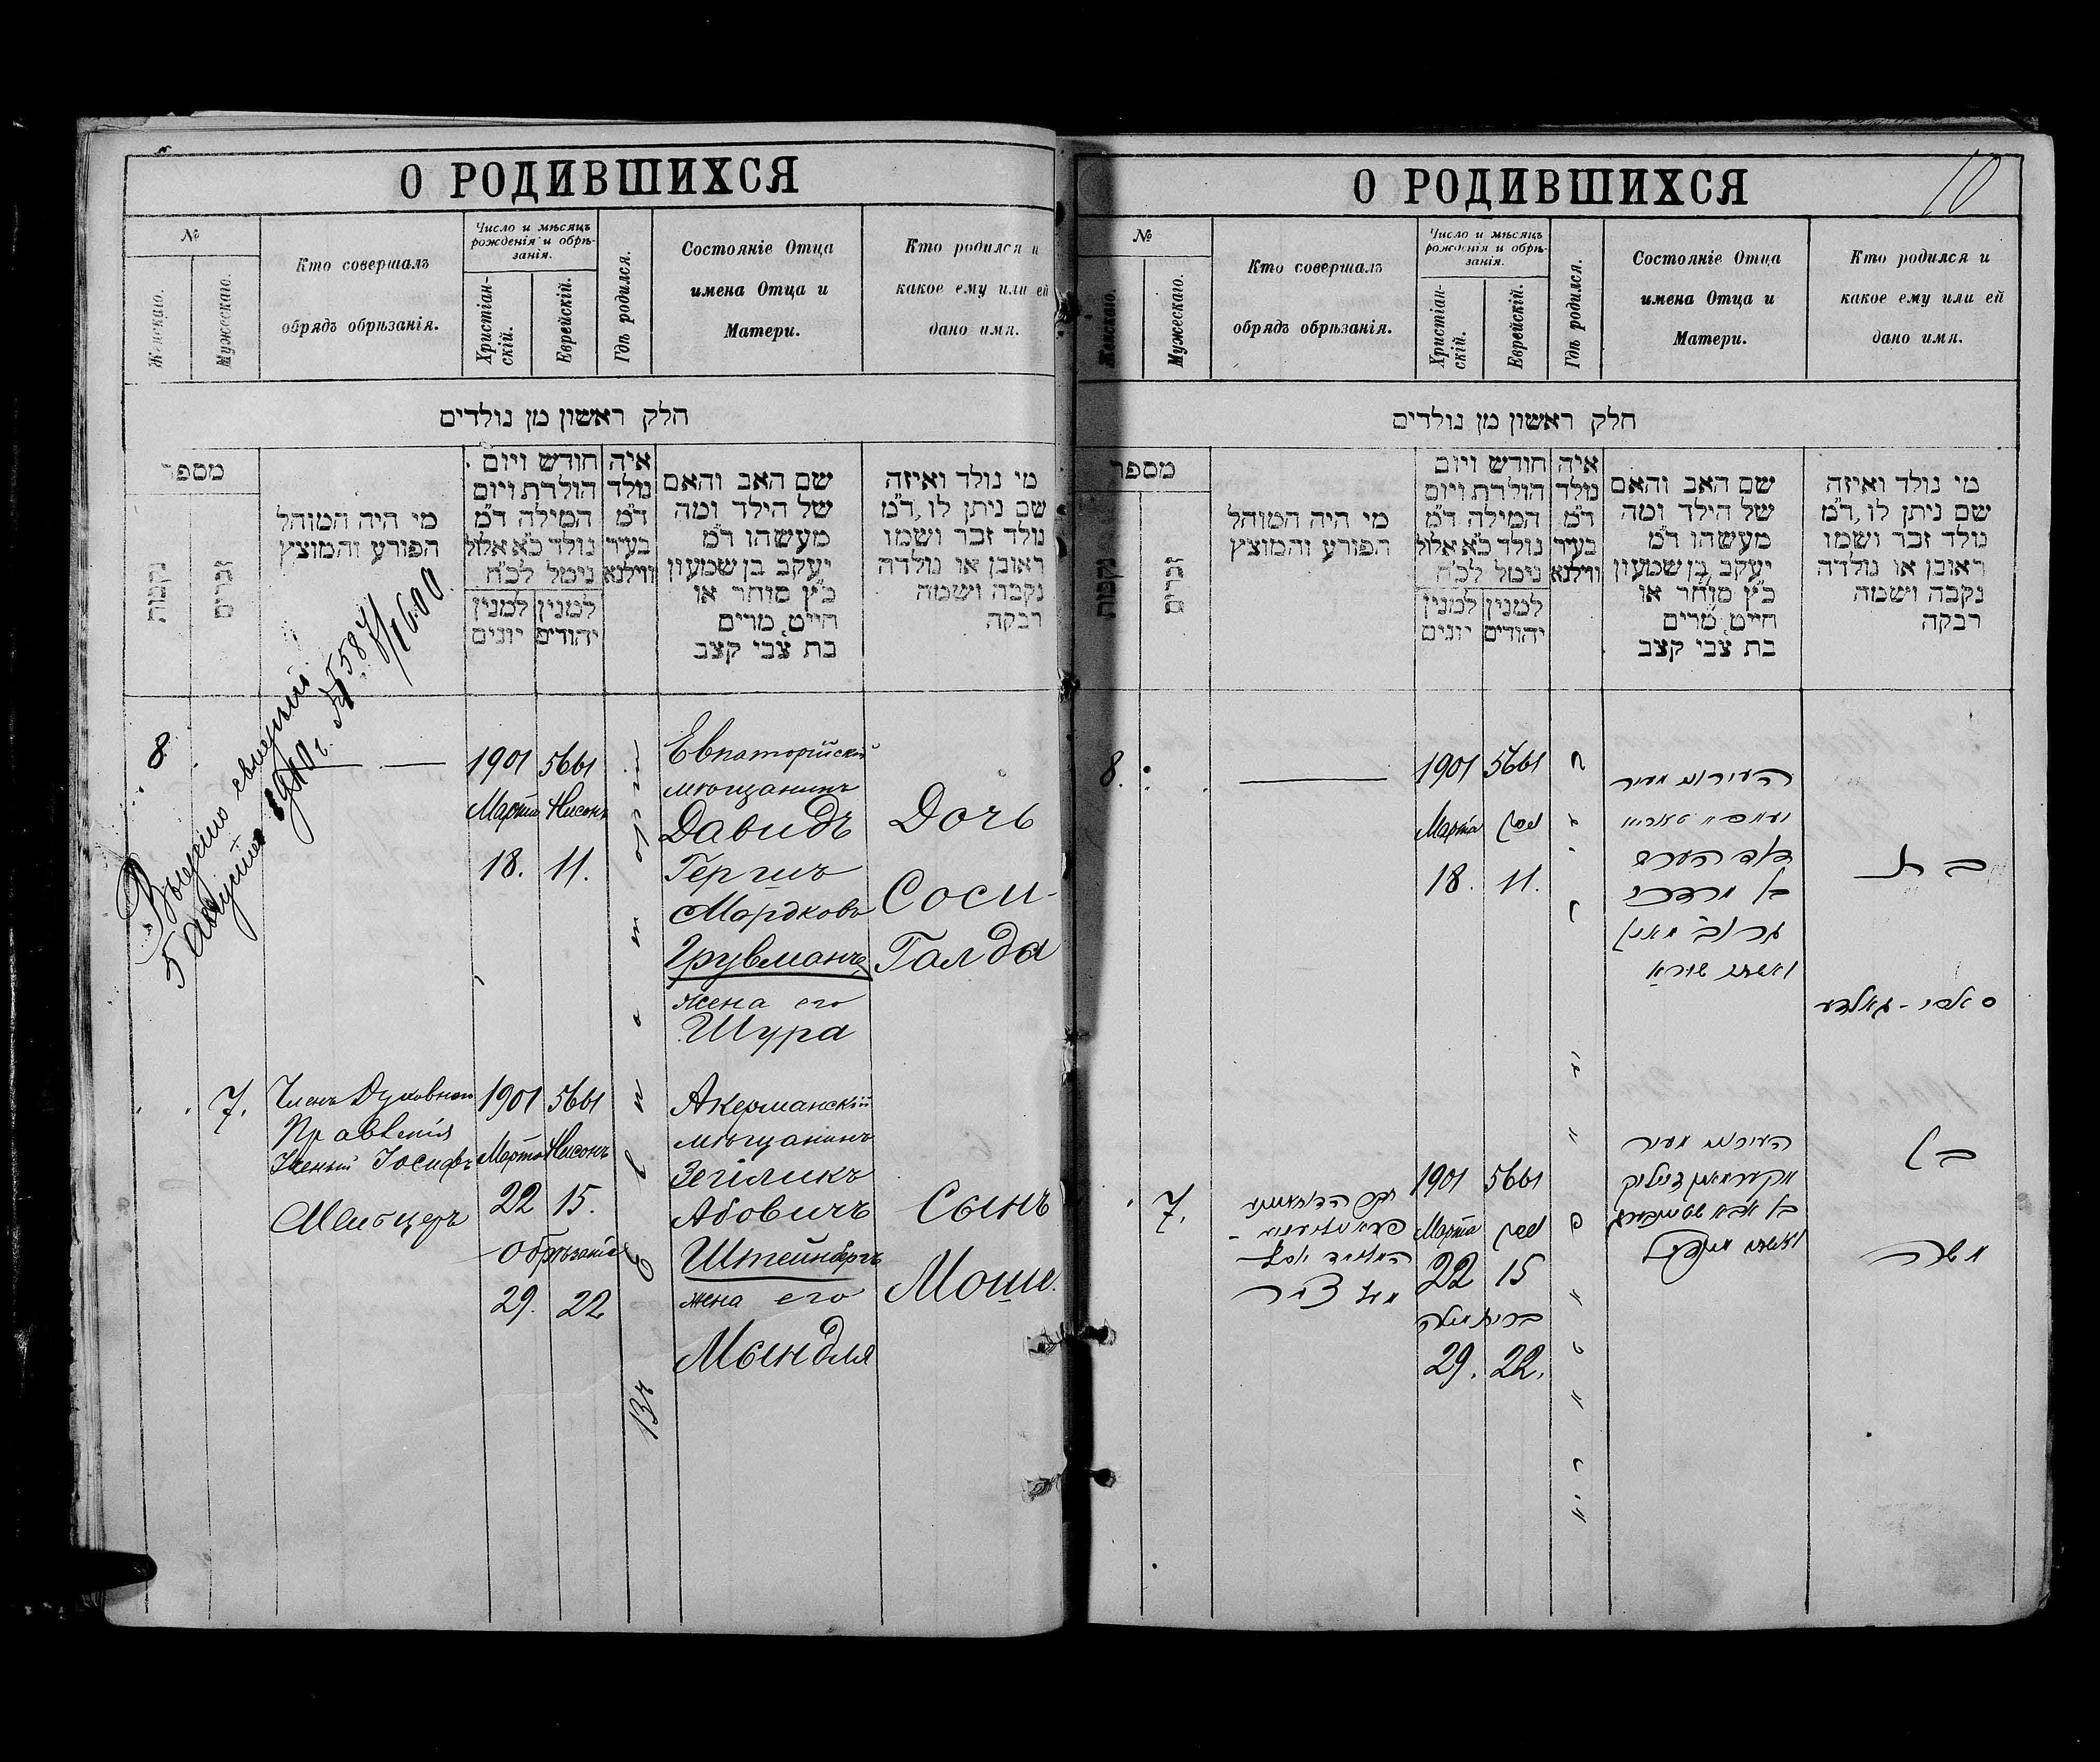 О РОДИВШИХСЯ
№
Женскаго.
Мужескаго.
Кто совершалъ
обрядъ обрѣзанія.
Число и мѣсяцъ
рожденія и обрѣ-
занія.
Христіан-
скій.
Еврейскій.
Гдѣ родился.
Состояніе Отца
имена Отца и
Матери.
Кто родился и
какое ему или ей
дано имя.
חלק ראשון מן נולדים
מספר
נקבות
זכרים
מי היה המוהל
הפורע והמוצץ
חודש ויום
הולדת ויום
המילה ד"מ
נולד כ"א אלול
נימל לכ"ח
למנין
יהודים
למנין
יונים
איה
נולד
ד"מ
בעיר
ווילנא
שם האב והאם
של הילד ומה
מעשהו ד"מ
יעקב בן שמעון
כ"ץ סוחר או
חייט, מרים
בת צבי קצב
מי נולד ואיזה
שם ניתן לו, ד"מ
נולד זכר ושמו
ראובן או נולדה
נקבה ושמה
רבקה
5 Августа 1910 г. №
8
1901 5661
Марта Нисонъ
18. 11.
Евпаторійскій
мѣщанинъ
Давидъ
Гершъ
Мордковъ
Грувманъ
жена его
Шура
Дочь
Соси-
Галда
Въ Евпаторіи
7.
Членъ Духовнаго
Правленія
Ученый Іосифъ
Мельцеръ
1901 5661
Марта Нисонъ
22 15.
Обрѣзаніе
29. 22
Акерманскій
мѣщанинъ
Зейликъ
Абовичъ
Штейнбергъ
жена его
Мындля
Сынъ
Моше.
О РОДИВШИХСЯ
10
№
Женскаго.
Мужескаго.
Кто совершалъ
обрядъ обрѣзанія.
Число и мѣсяцъ
рожденія и обрѣ-
занія.
Христіан-
скій.
Еврейскій.
Гдѣ родился.
Состояніе Отца
имена Отца и
Матери.
Кто родился и
какое ему или ей
дано имя.
חלק ראשון מן נולדים
מספר
נקבות
זכרים
מי היה המוהל
הפורע והמוצץ
חודש ויום
הולדת ויום
המילה ד"מ
נולד כ"א אלול
נימל לכ"ח
למנין
יהודים
למנין
יונים
איה
נולד
ד"מ
בעיר
ווילנא
שם האב והאם
של הילד ומה
מעשהו ד"מ
יעקב בן שמעון
כ"ץ סוחר או
חייט, מרים
בת צבי קצב
מי נולד ואיזה
שם ניתן לו, ד"מ
נולד זכר ושמו
ראובן או נולדה
נקבה ושמה
רבקה
8.
1901 5661
Марта ניסן
18. 11.
העירוני מעיר
דוד הערש
בן מרדכי
גרובמאן
ואשתו שורא
בת
סאסי-גאלדע
7.
יוסף
מעלצער
1901 5661
Марта ניסן
22 15
ברית מילה
29. 22.
העירוני מעיר
אקערמאן זייליק
בן אבא שטיינבערג
ואשתו מינדל
בן
משה